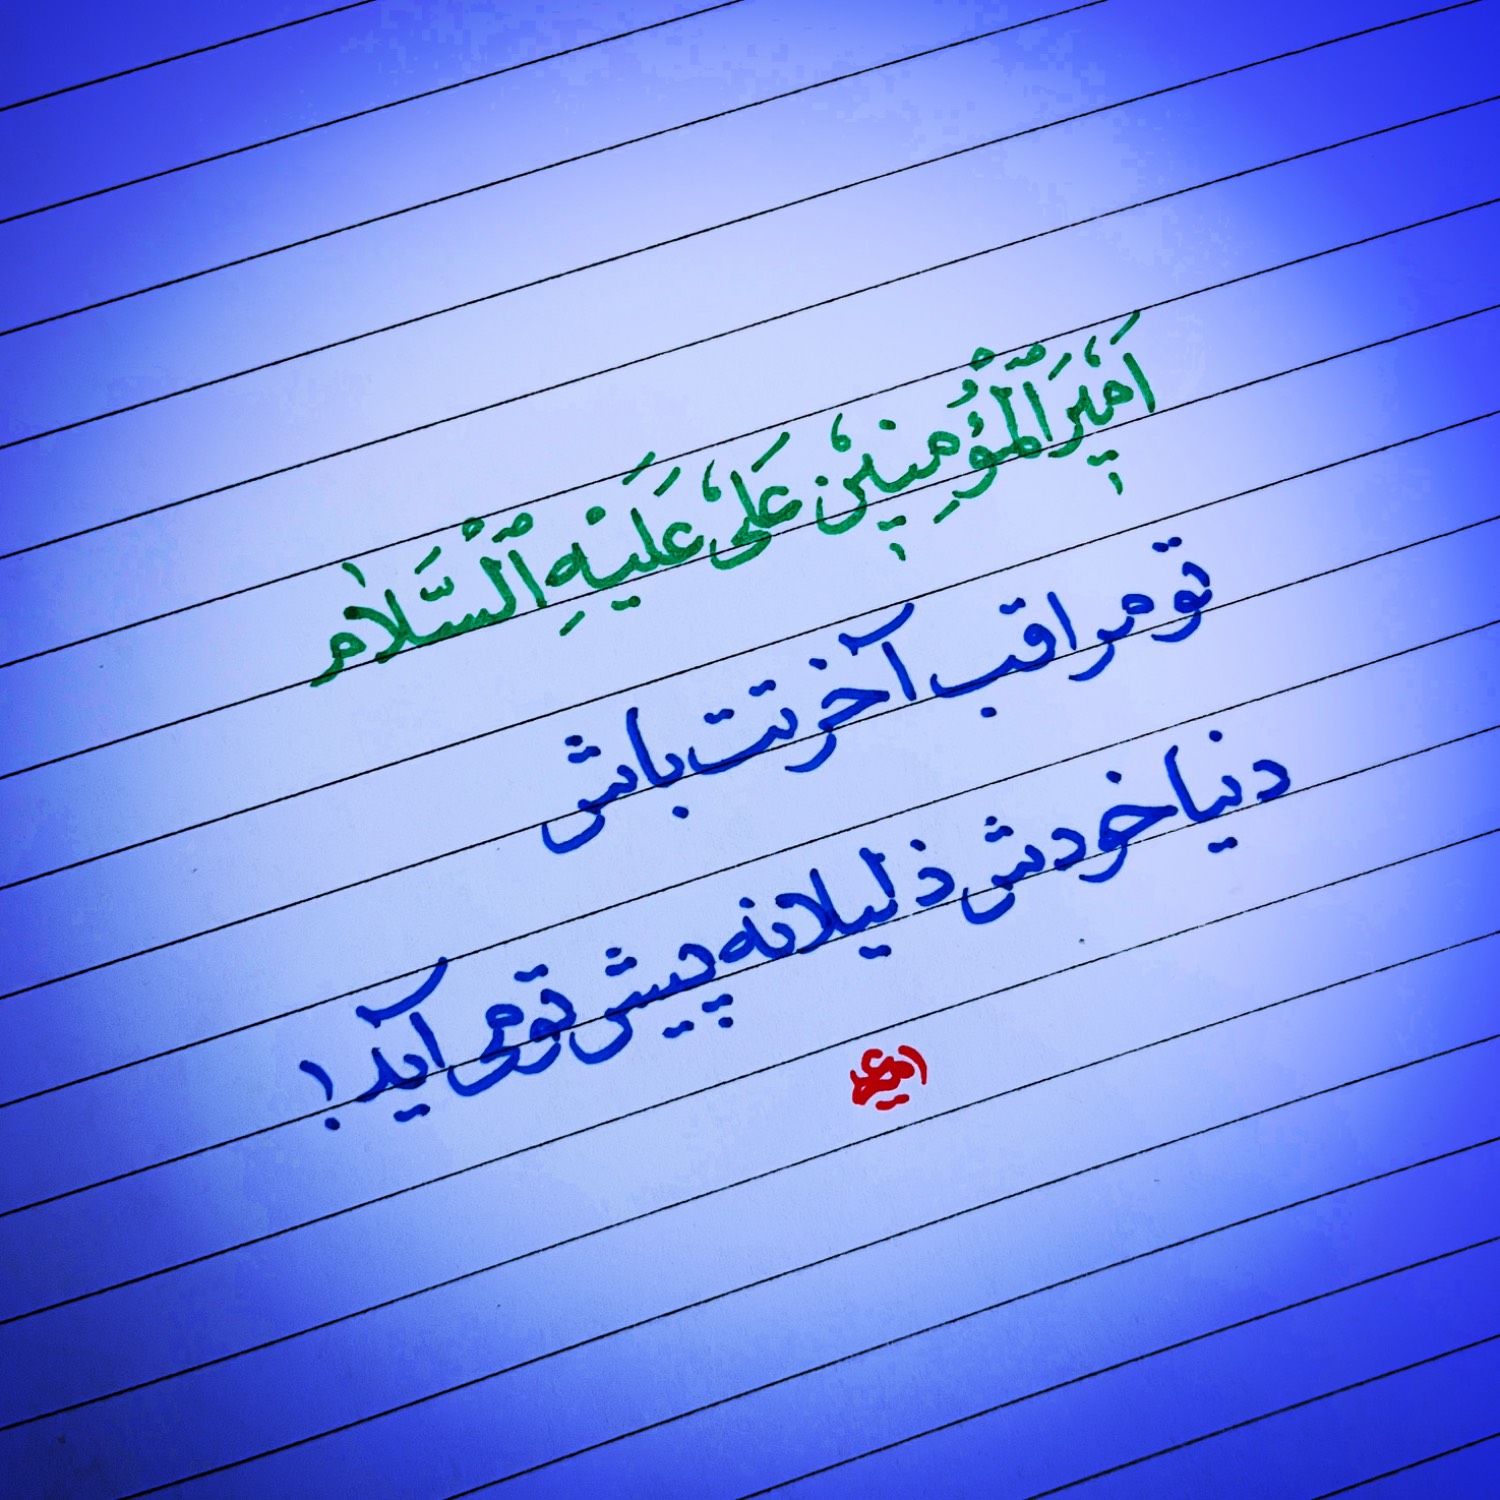 اَمیٖرَٱلْمُؤْمِنیٖن عَلی عَلَیْهِ ٱلْسَّلٰام
تو مراقب آخرتت باش
دنیا خودش ذلیلانه پیش تو می آید !